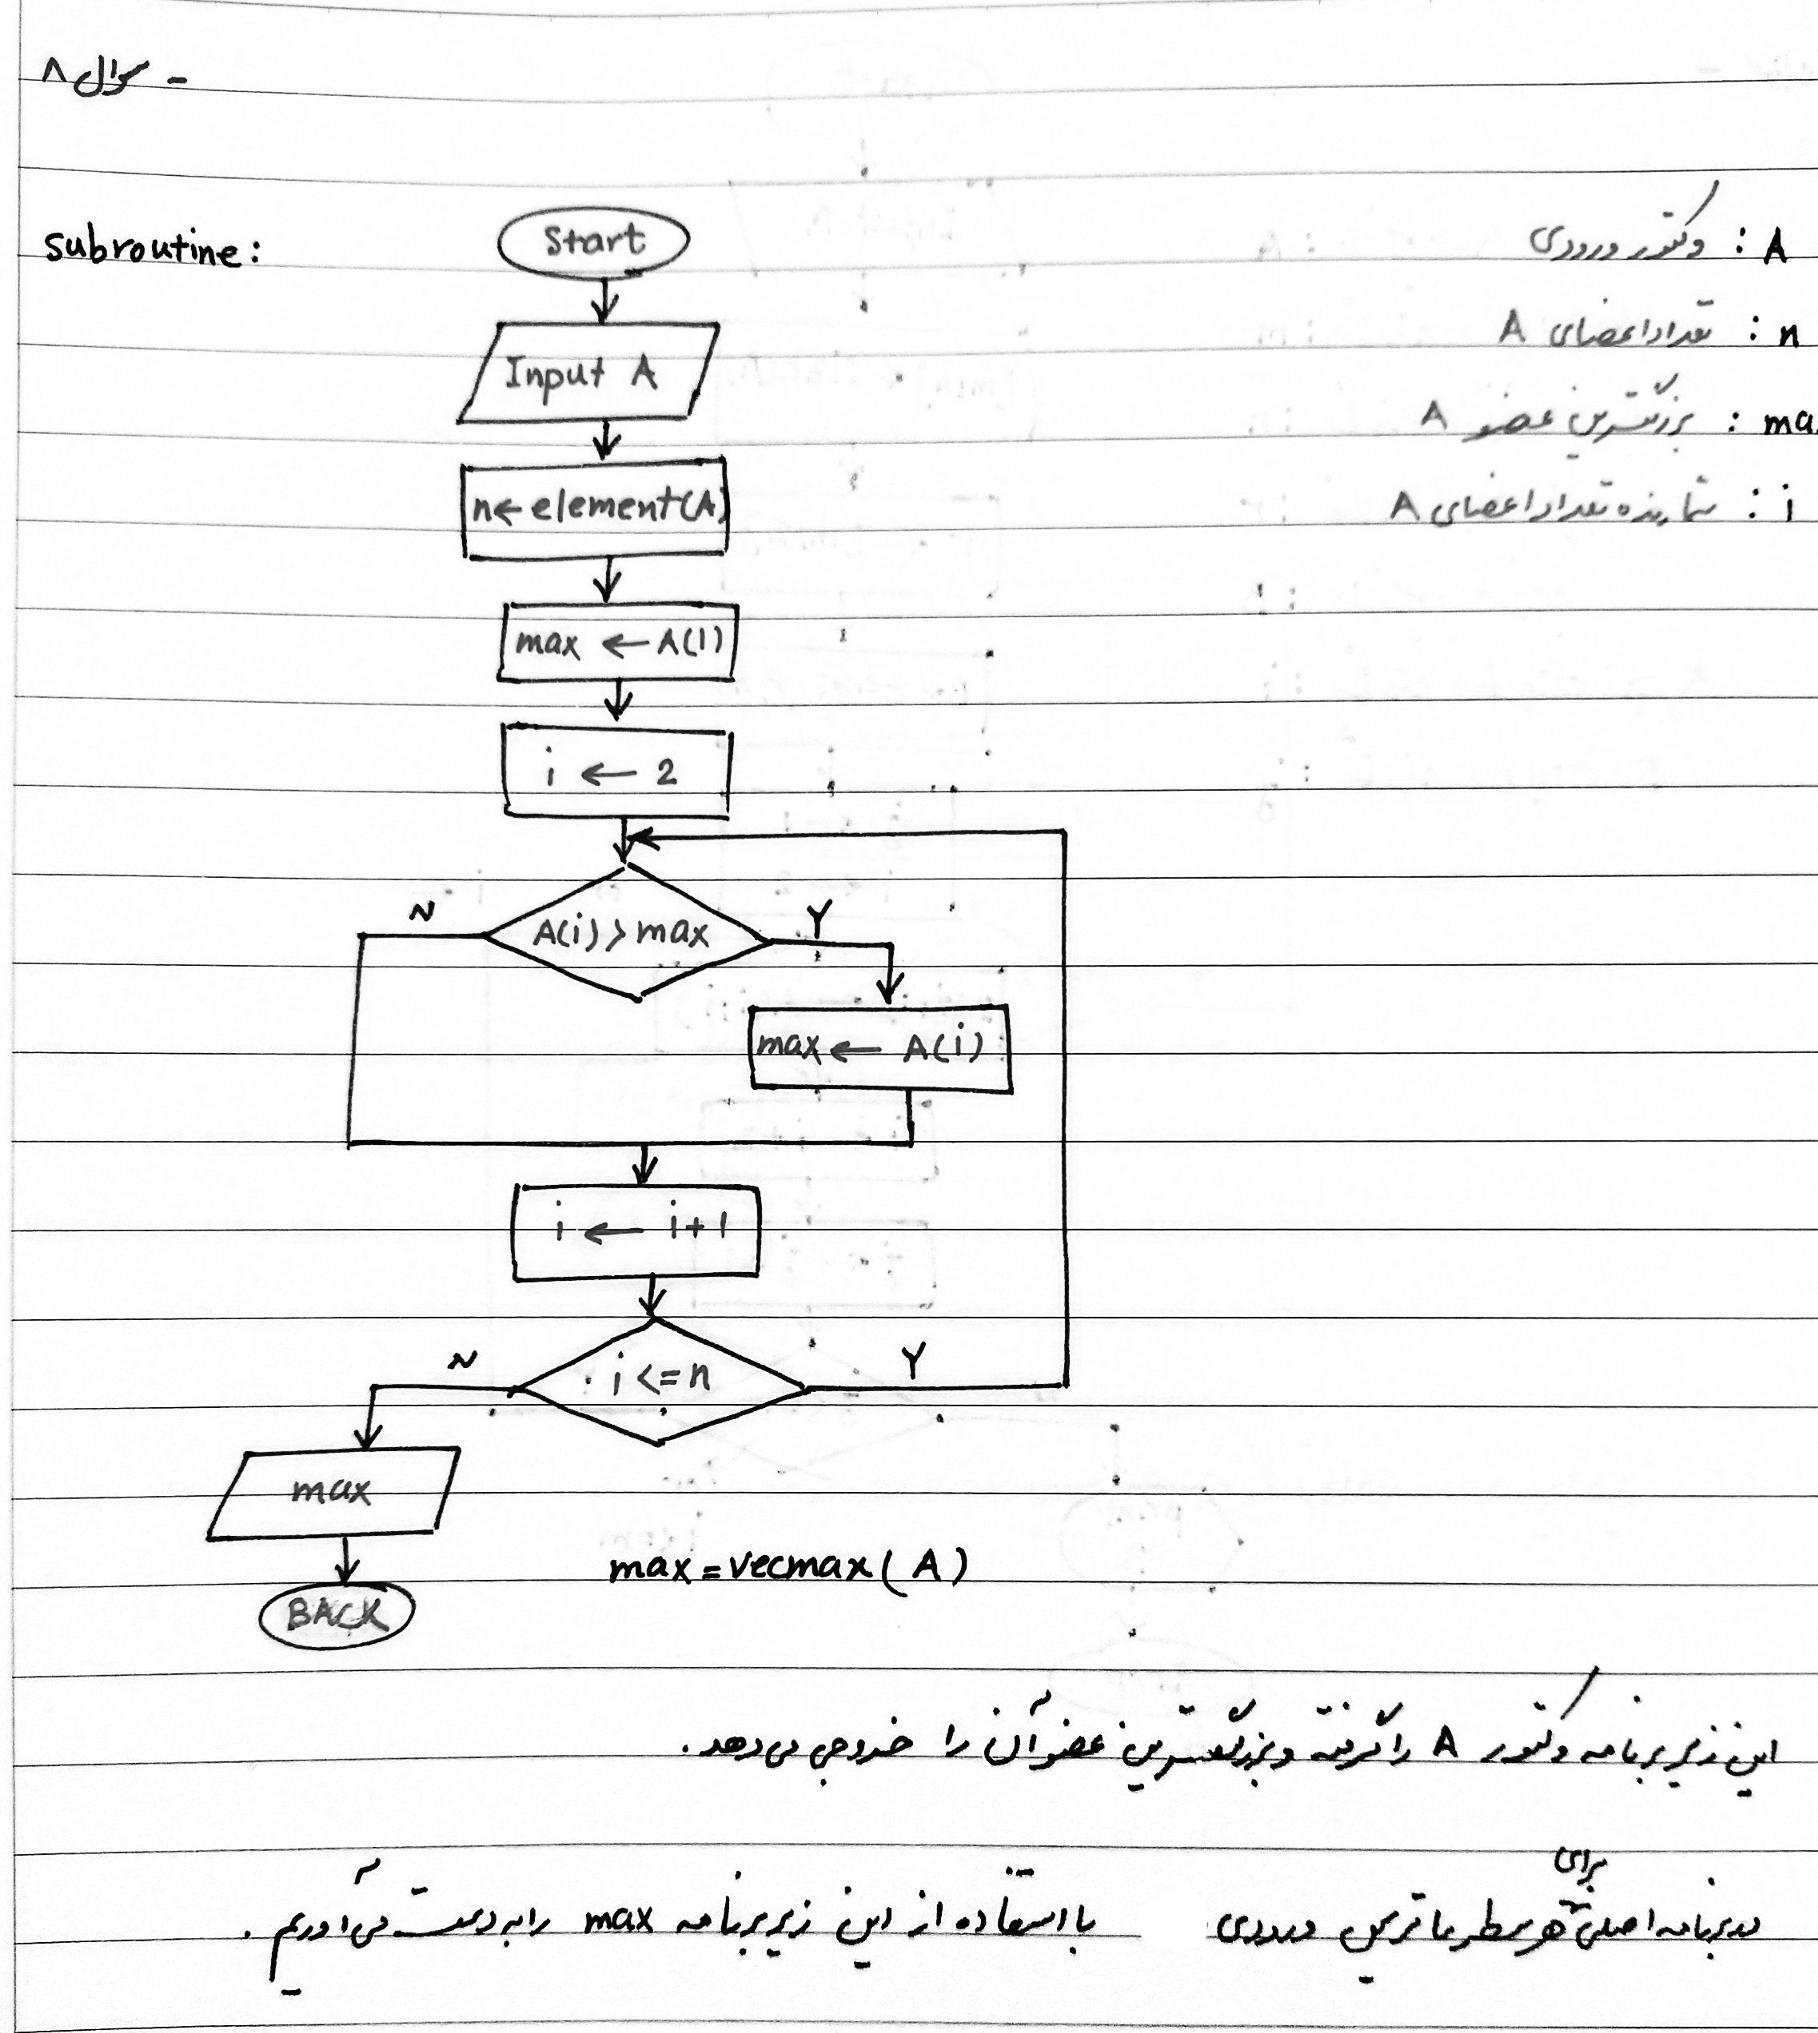 - سوال ۸
subroutine:
A : وکتور ورودی
n : تعداد اعضای A
ma : بزرگترین عضو A
i : شمارنده تعداد اعضای A
Start
Input A
n ← element(A)
max ← A(1)
i ← 2
A(i) > max
N
Y
max ← A(i)
i ← i+1
i <= n
N
Y
max
BACK
max = vecmax(A)
این زیربرنامه وکتور A را گرفته و بزرگترین عضو آن را خروجی می دهد.
در برنامه اصلی برای هر سطر ماتریس ورودی با استفاده از این زیربرنامه max را به دست می آوریم.